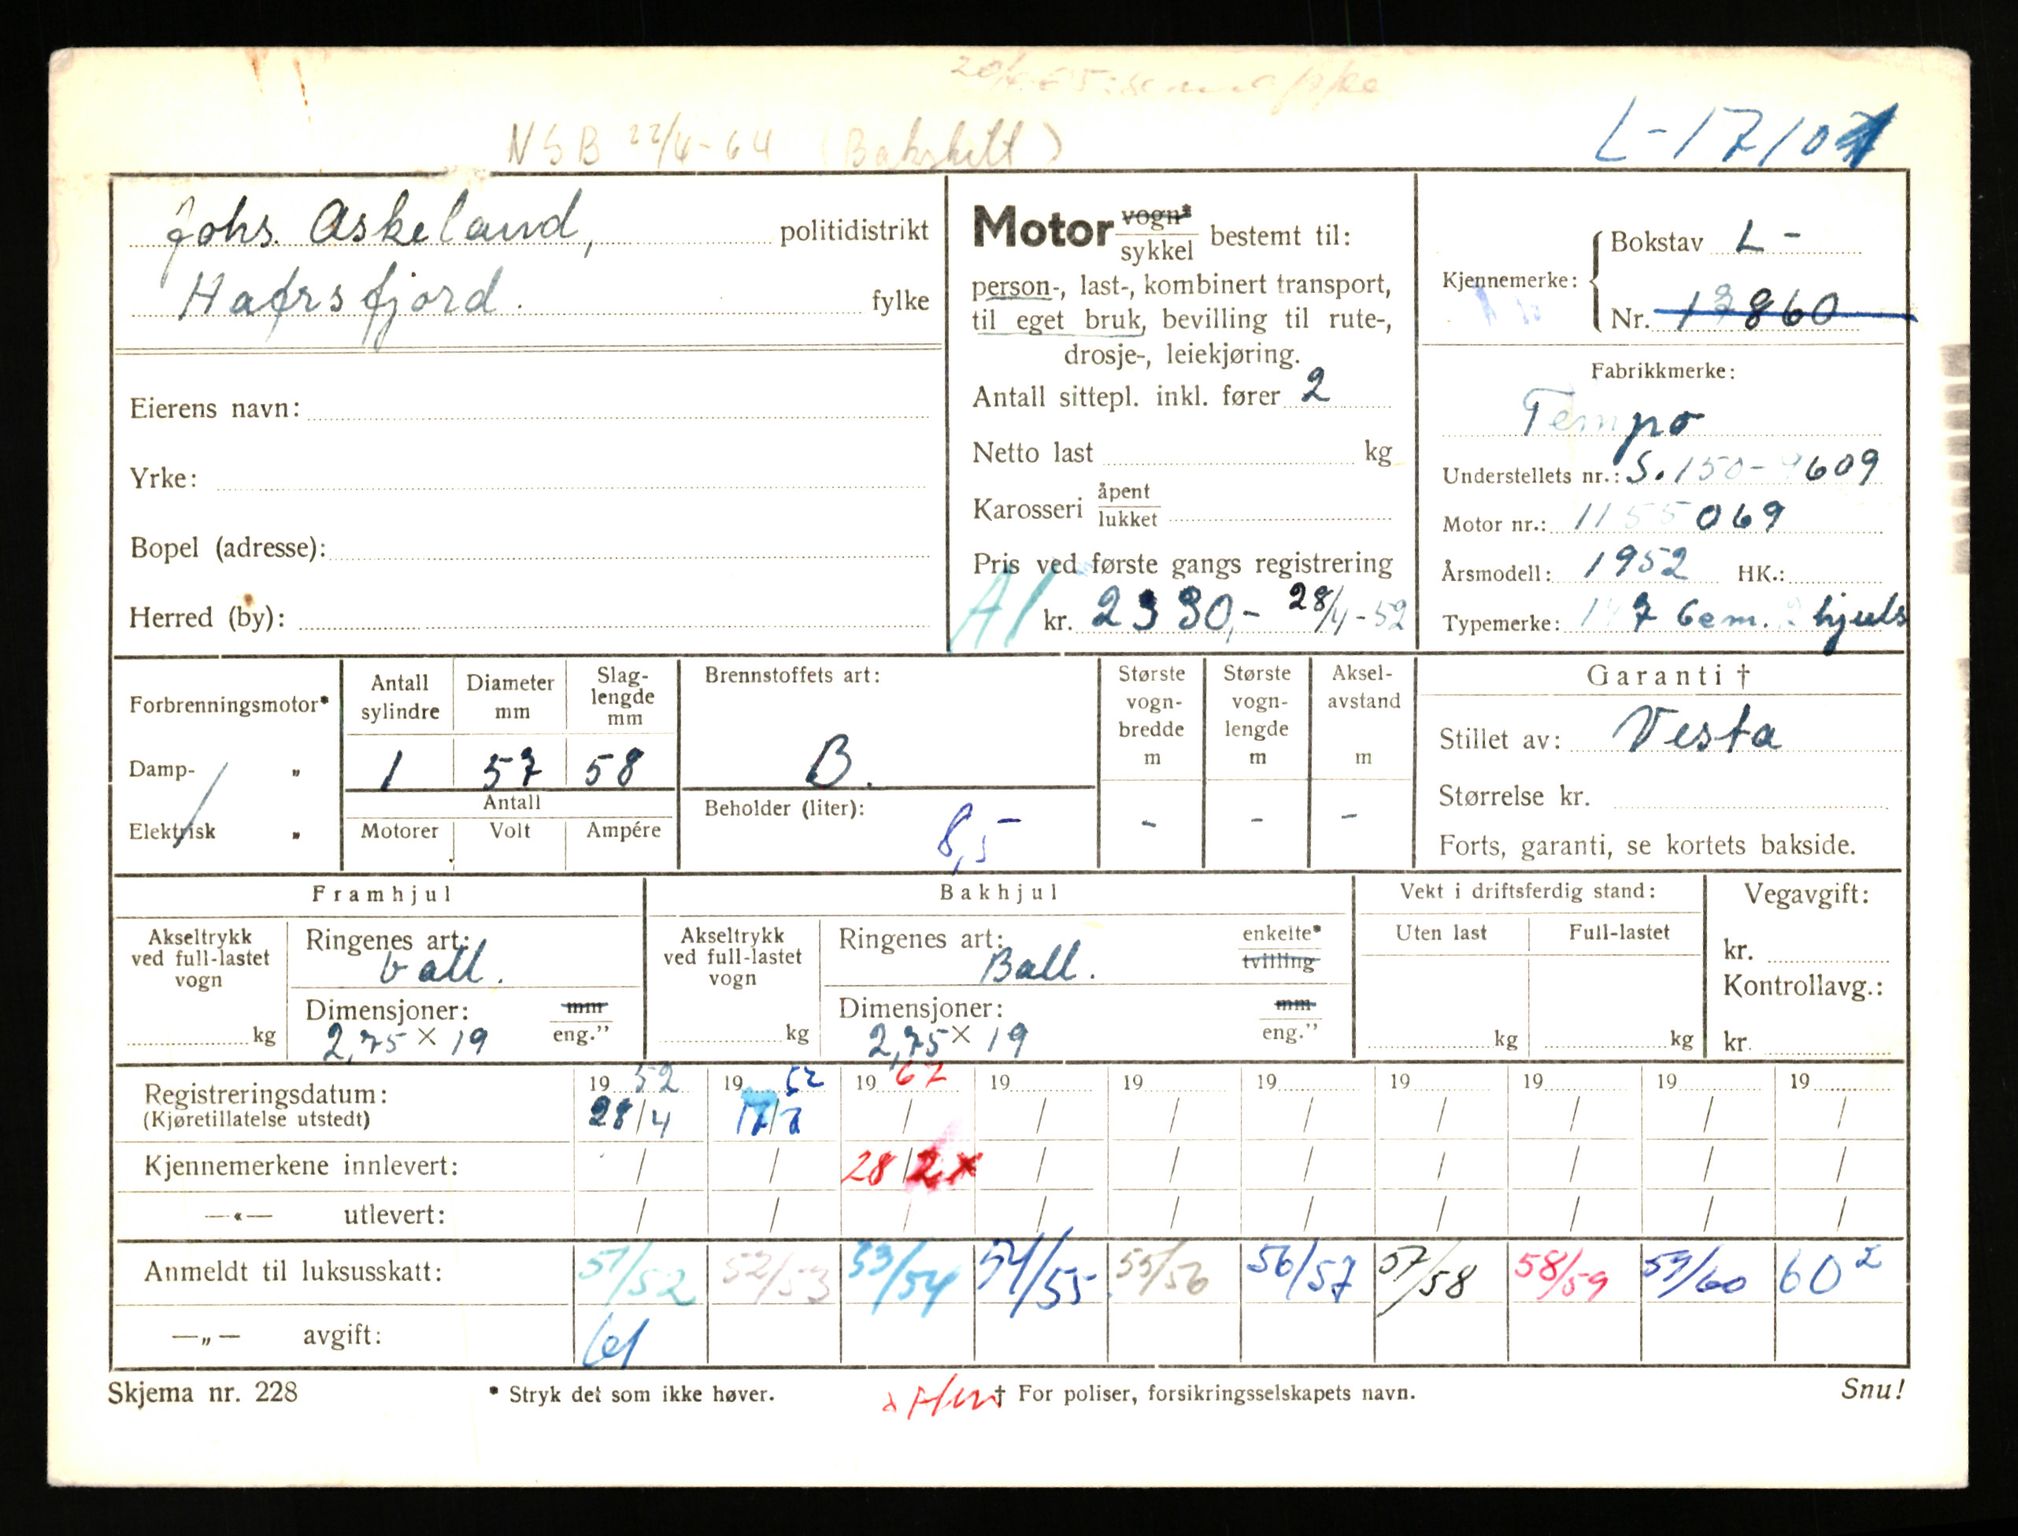 NSB 22/4-64 (Bakskilt)
L-17107
Johs. Askeland, politidistrikt
Hafrsfjord. fylke
Eierens navn:
Yrke:
Bopel (adresse):
Herred (by):
Motor vogn* sykkel bestemt til:
person-, last-, kombinert transport,
til eget bruk, bevilling til rute-,
drosje-, leiekjøring.
Antall sittepl. inkl. fører 2
Netto last kg
Karosseri åpent lukket
Pris ved første gangs registrering
A1 kr. 2330,- 28/4-52
Kjennemerke: Bokstav L -
Nr. 17860
Fabrikkmerke:
Tempo
Understellets nr.: S.150-9609
Motor nr.: 1155069
Årsmodell: 1952 HK.:
Typemerke: 147 6cm. 2 hjuls
Forbrenningsmotor*
Damp- „
Elektrisk „
Antall sylindre
Diameter mm
Slag-lengde mm
1 57 58
Antall
Motorer Volt Ampére
Brennstoffets art:
B.
Beholder (liter):
8,5
Største vogn-bredde m
Største vogn-lengde m
Aksel-avstand m
- - -
Garanti †
Stillet av: Vesta
Størrelse kr.
Forts, garanti, se kortets bakside.
Framhjul
Akseltrykk ved full-lastet vogn
kg
Ringenes art:
ball.
Dimensjoner: mm eng.”
2,75 x 19
Bakhjul
Akseltrykk ved full-lastet vogn
kg
Ringenes art: enkelte* tvilling
Ball.
Dimensjoner: mm eng.”
2,75 x 19
Vekt i driftsferdig stand:
Uten last Full-lastet
kg kg
Vegavgift:
kr.
Kontrollavg.:
kr.
19 52 19 52 19 62 19 19 19 19 19 19 19
Registreringsdatum:
(Kjøretillatelse utstedt)
28/4 17/7 / / / / / / / /
Kjennemerkene innlevert: / / 28/2 x / / / / / / /
—«— utlevert: / / / / / / / / / /
Anmeldt til luksusskatt: 51/52 52/53 53/54 54/55 55/56 56/57 57/58 58/59 59/60 60²
—„— avgift: 61
Skjema nr. 228
* Stryk det som ikke høver.
† For poliser, forsikringsselskapets navn.
Snu!